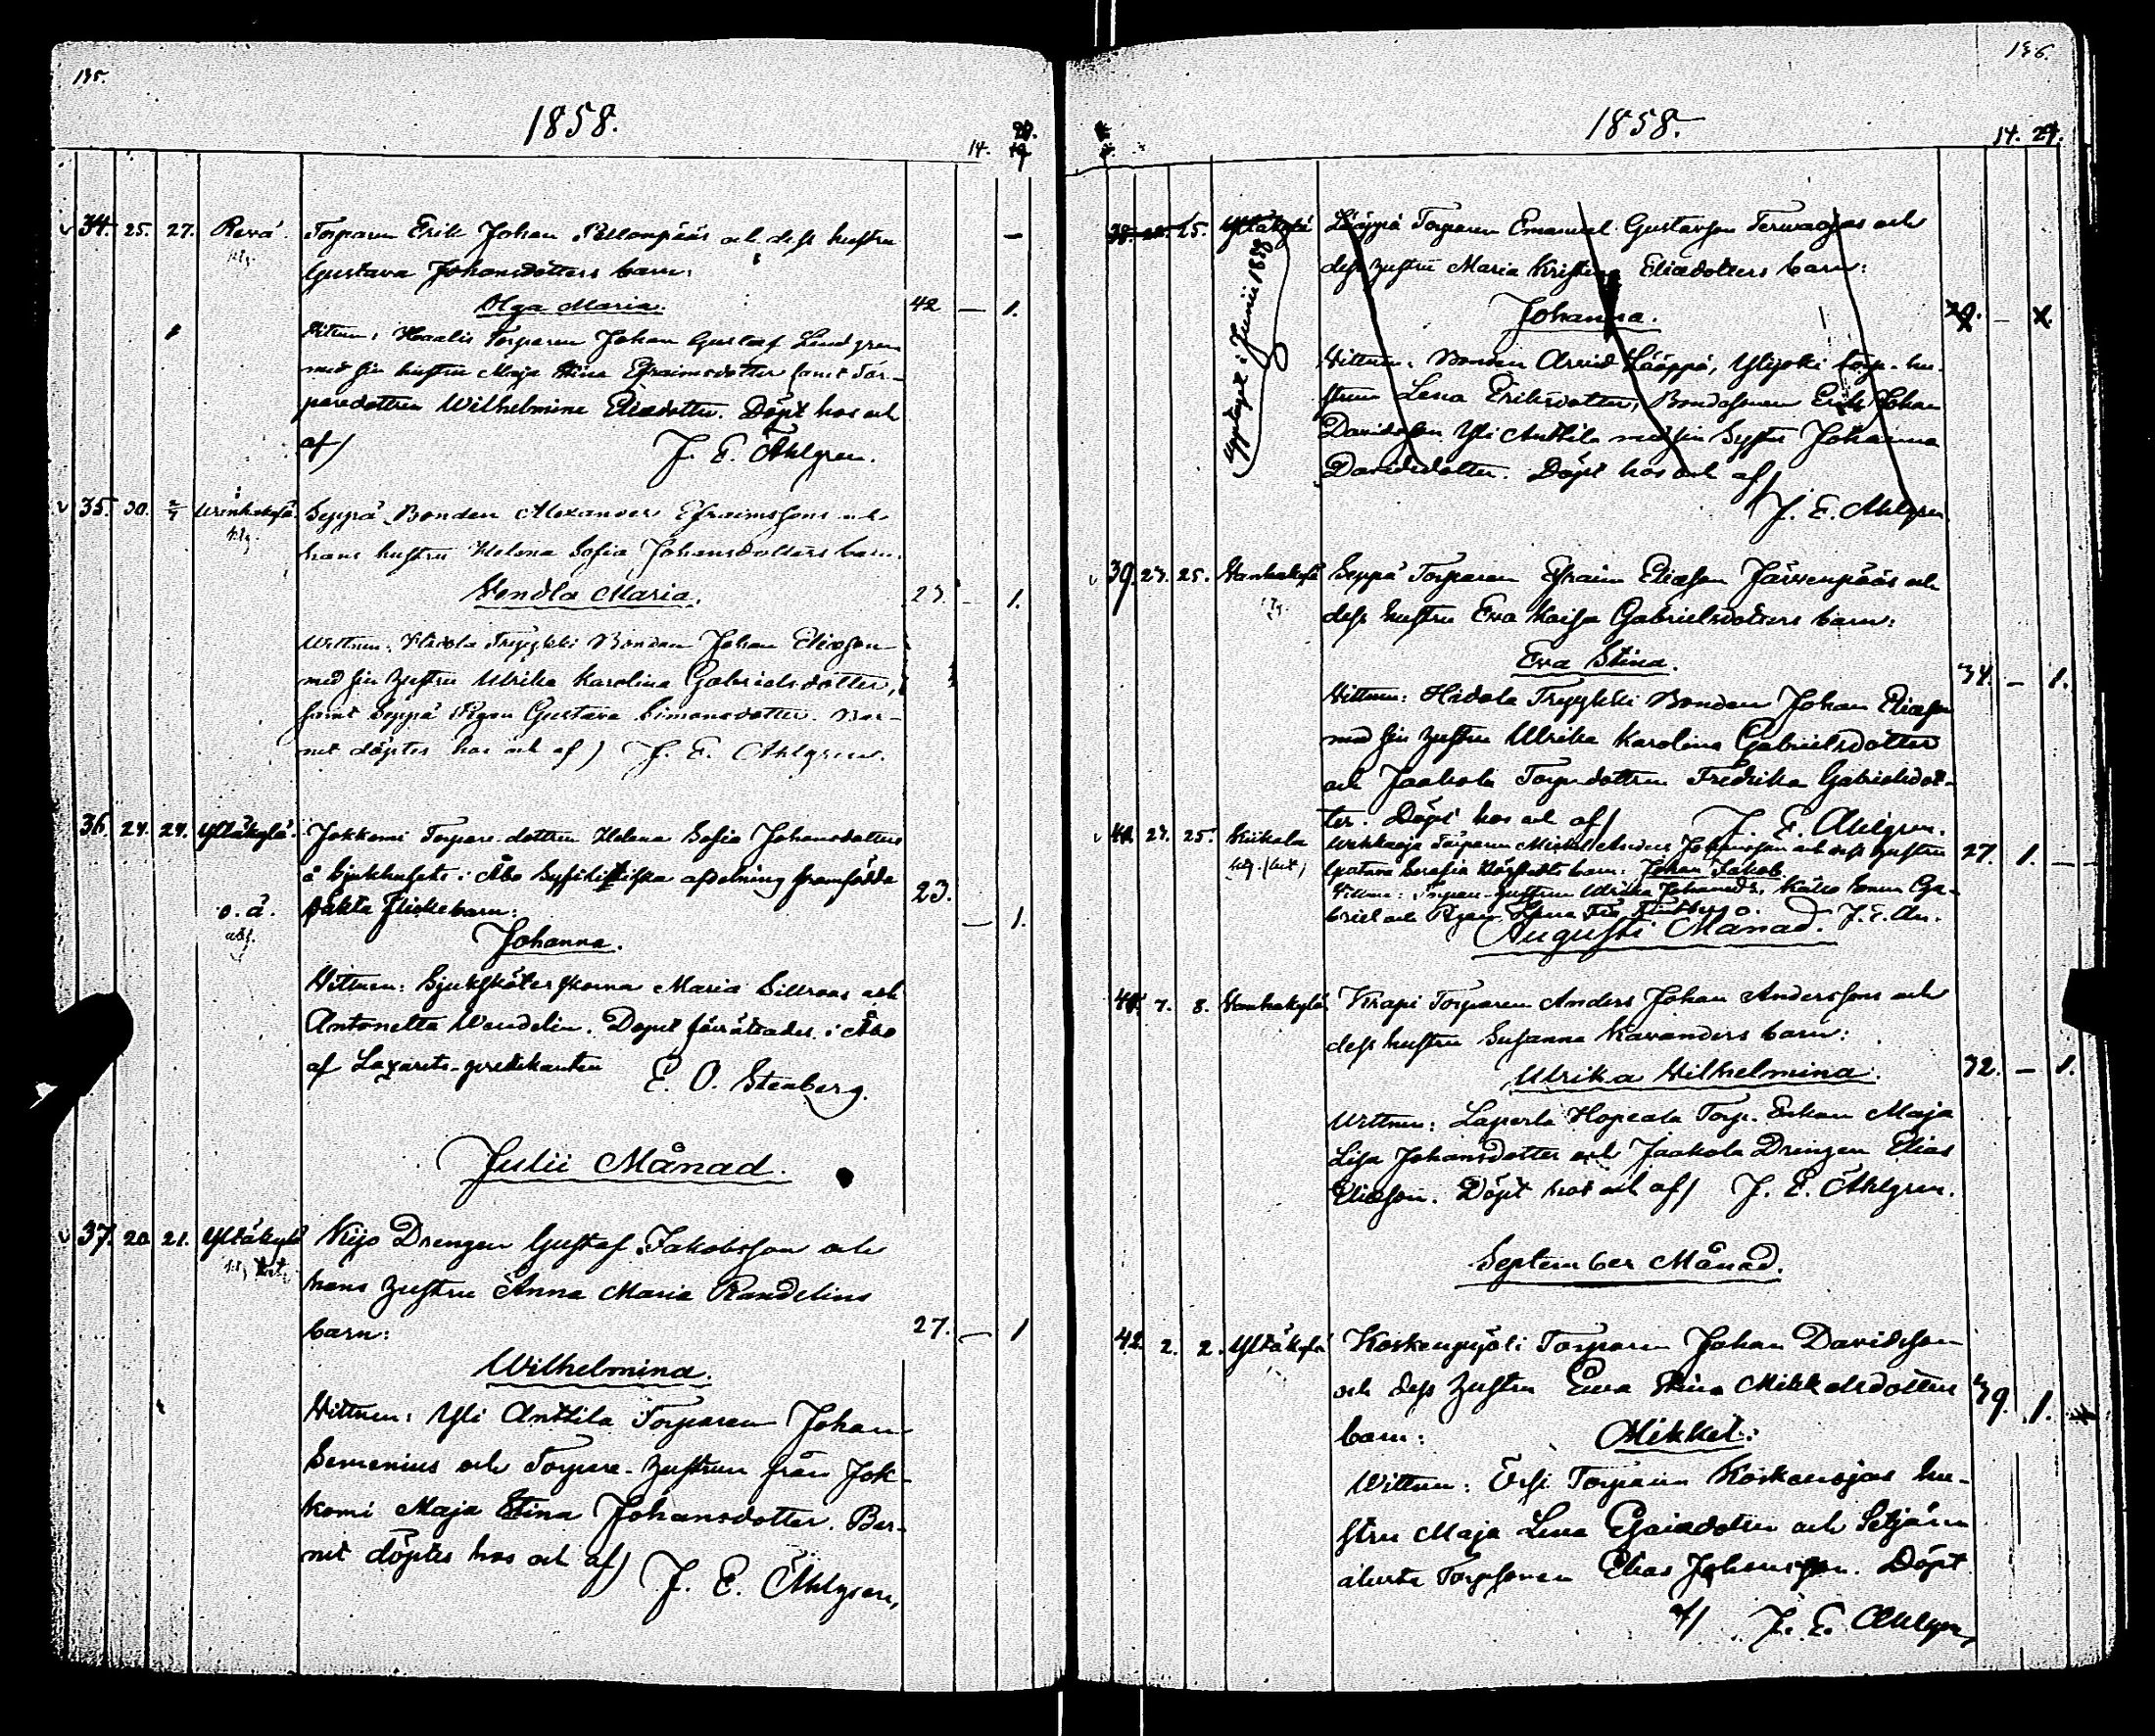 135.
1858.
14. 29.
34. 25. 27. Revä. Torparen Erik Johan Pellonpääs och dess hustru
Gustava Johansdotters barn:
Olga Maria. 42 — 1.
Vittnen: Torparen Johan Gustaf Lindgren
med sin hustru Maja Stina Efraimsdotter samt Tor-
paredottren Wilhelmina Eliædotter. Döpt hos och
af) J. E. Åhlgren.
35. 30. 2/7 Seppä Bonden Alexander Efraimssons och
hans hustru Helena Sofia Johansdotters barn.
Vendla Maria. 23. — 1.
Wittnen: Hidola Tryykki Bonden Johan Eliæson
med sin hustru Ulrika Karolina Gabrielsdotter,
samt Seppä Pigan Gustava Simonsdotter. Bar-
net döptes hos och af) J. E. Åhlgren.
36. 24. 24. Yltäkylä. Jokkomi Torpare-dottren Helena Sofia Johansdotters
å Sjukhuset i Åbo afdelning framfödda
oäkta flickebarn: 23.
o. ä. — 1.
Johanna.
Vittnen: Sjuksköterskorna Maria och
Antonetta Wendelin. Dopet förrättades i Åbo
af Lazarets-predikanten E. O. Stenberg.
Julii Månad.
37. 20. 21. Yltäkylä Nijo Drengen Gustaf Jakobsson och
hans hustru Anna Maria Randelins
barn: 27. — 1
Wilhelmina.
Vittnen: Yli Anttila Torparen Johan
Semenius och Torpare-hustrun från Jok-
komi Maja Stina Johansdotter. Bar-
net döptes hos och af) J. E. Åhlgren,
136.
1858.
14. 29.
38. 25. Yltäkylä Lääppä Torparen Emanuel Gustavson Terwaojas och
dess hustru Maria Kristina Eliædotters barn:
Johanna.
Upptagit i Junii 1858
Vittnen: Bonden Arvid Lääppä, Ylijoki torp. hu-
strun Lena Eriksdotter, Bondesonen Erik Johan
Davidsson Yli Anttila med sin Syster Johanna
Davidsdotter. Döpt hos och af)
J. E. Åhlgren.
39. 23. 25. Vanhakylä Seppä Torparen Efraim Eliæson Järvenpääs och
dess hustru Eva Kaisa Gabrielsdotters barn:
Eva Stina. 34. — 1.
Vittnen: Hidola Tryykki Bonden Johan Eliæson
med sin hustru Ulrika Karolina Gabrielsdotter
och Jaakola Torpedottren Fredrika Gabrielsdot-
ter. Döpt hos och af) J. E. Åhlgren.
40. 23. 25. Kiikola Torparen Mickel Johansson och dess hustru 27. 1. —
Gustava Serafia barn: Johan Jakob.
Vittnen: hustrun Ulrika Johansdr, Ga-
briel och Pigan J. E. Ån.
Augusti Månad.
41. 7. 8. Vanhakylä Krapi Torparen Anders Johan Anderssons och
dess hustru Susanna Kavanders barn:
Ulrika Wilhelmina. 32. — 1.
Wittnen: Laperla Hopeala Torp. Enkan Maja
Lisa Johansdotter och Jaakola Drengen Elias
Eliæson. Döpt hos och af) J. E. Åhlgren.
September Månad.
42. 2. 2. Yltäkylä Koskenpyöli Torparen Johan Davidsson
och dess hustru Ewa Stina Mikkelsdotters 39. 1.
barn: Mikkel.
Wittnen: Torparen Koskenojas hu-
stru Maja Lena Esaiædotter och
Torpsonen Elias Johansson. Döpt
af) J. E. Åhlgren,